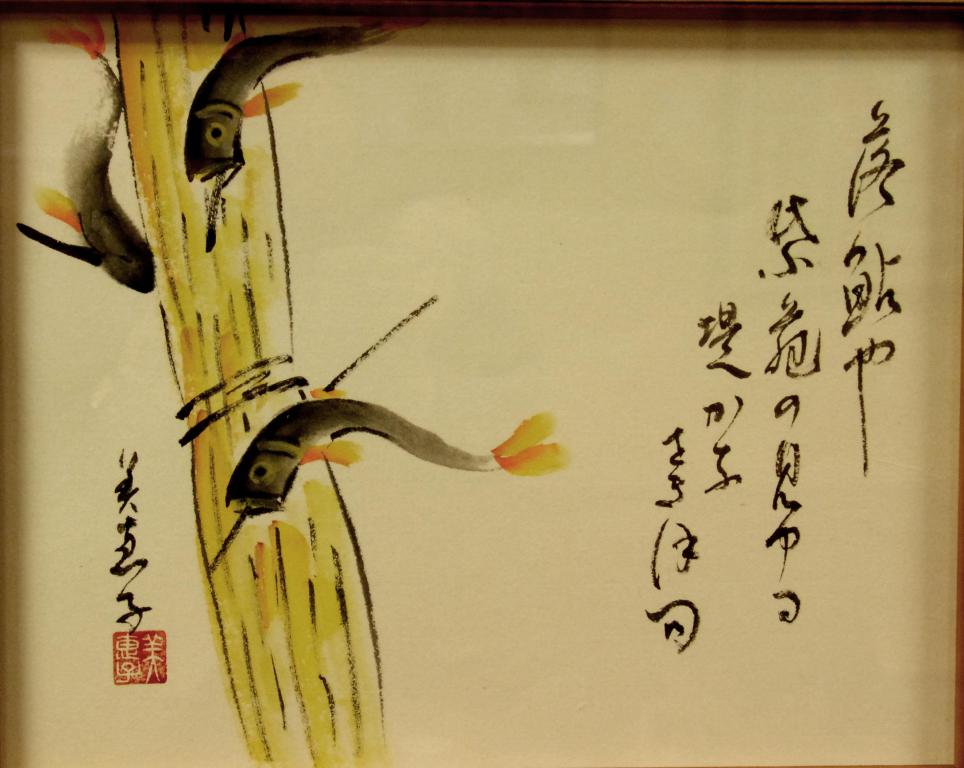 落鮎や
紫苑の見ゆる
堤かな
美恵子
美恵子